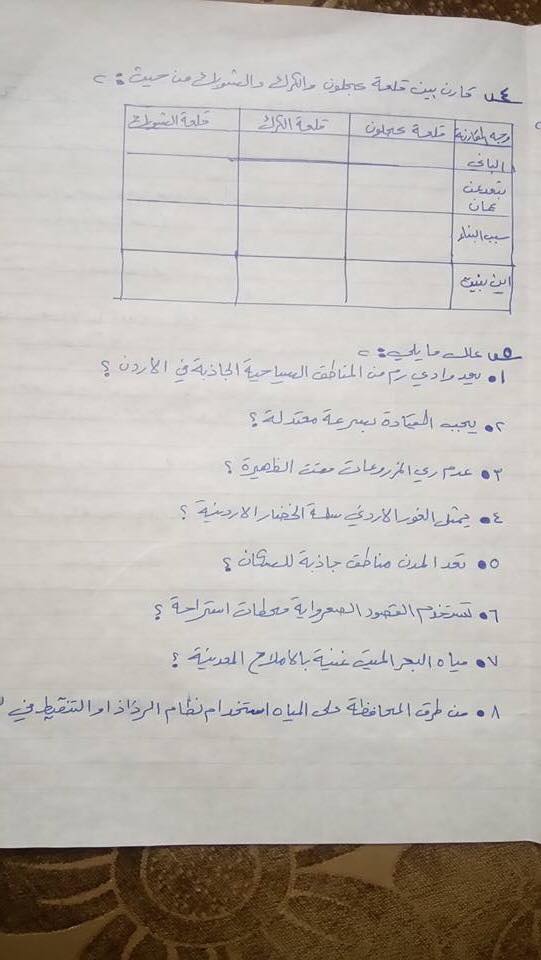 س٤ قارن بين قلعة عجلون والكرك والشوبك من حيث :
وجه المقارنة قلعة عجلون قلعة الكرك قلعة الشوبك
الباني
تبعد عن
عمان
سبب البناء
اين بنيت
س٥ علل ما يلي :
١• يعد وادي رم من المناطق السياحية الجاذبة في الاردن ؟
٢• يجب القيادة بسرعة معتدلة ؟
٣• عدم ري المزروعات وقت الظهيرة ؟
٤• يمثل الغور الاردني سلة الخضار الاردنية ؟
٥• تعد المدن مناطق جاذبة للسكان ؟
٦• تستخدم القصور الصحراوية محطات استراحة ؟
٧• مياه البحر الميت غنية بالاملاح المعدنية ؟
٨• من طرق المحافظة على المياه استخدام نظام الرذاذ او التنقيط في